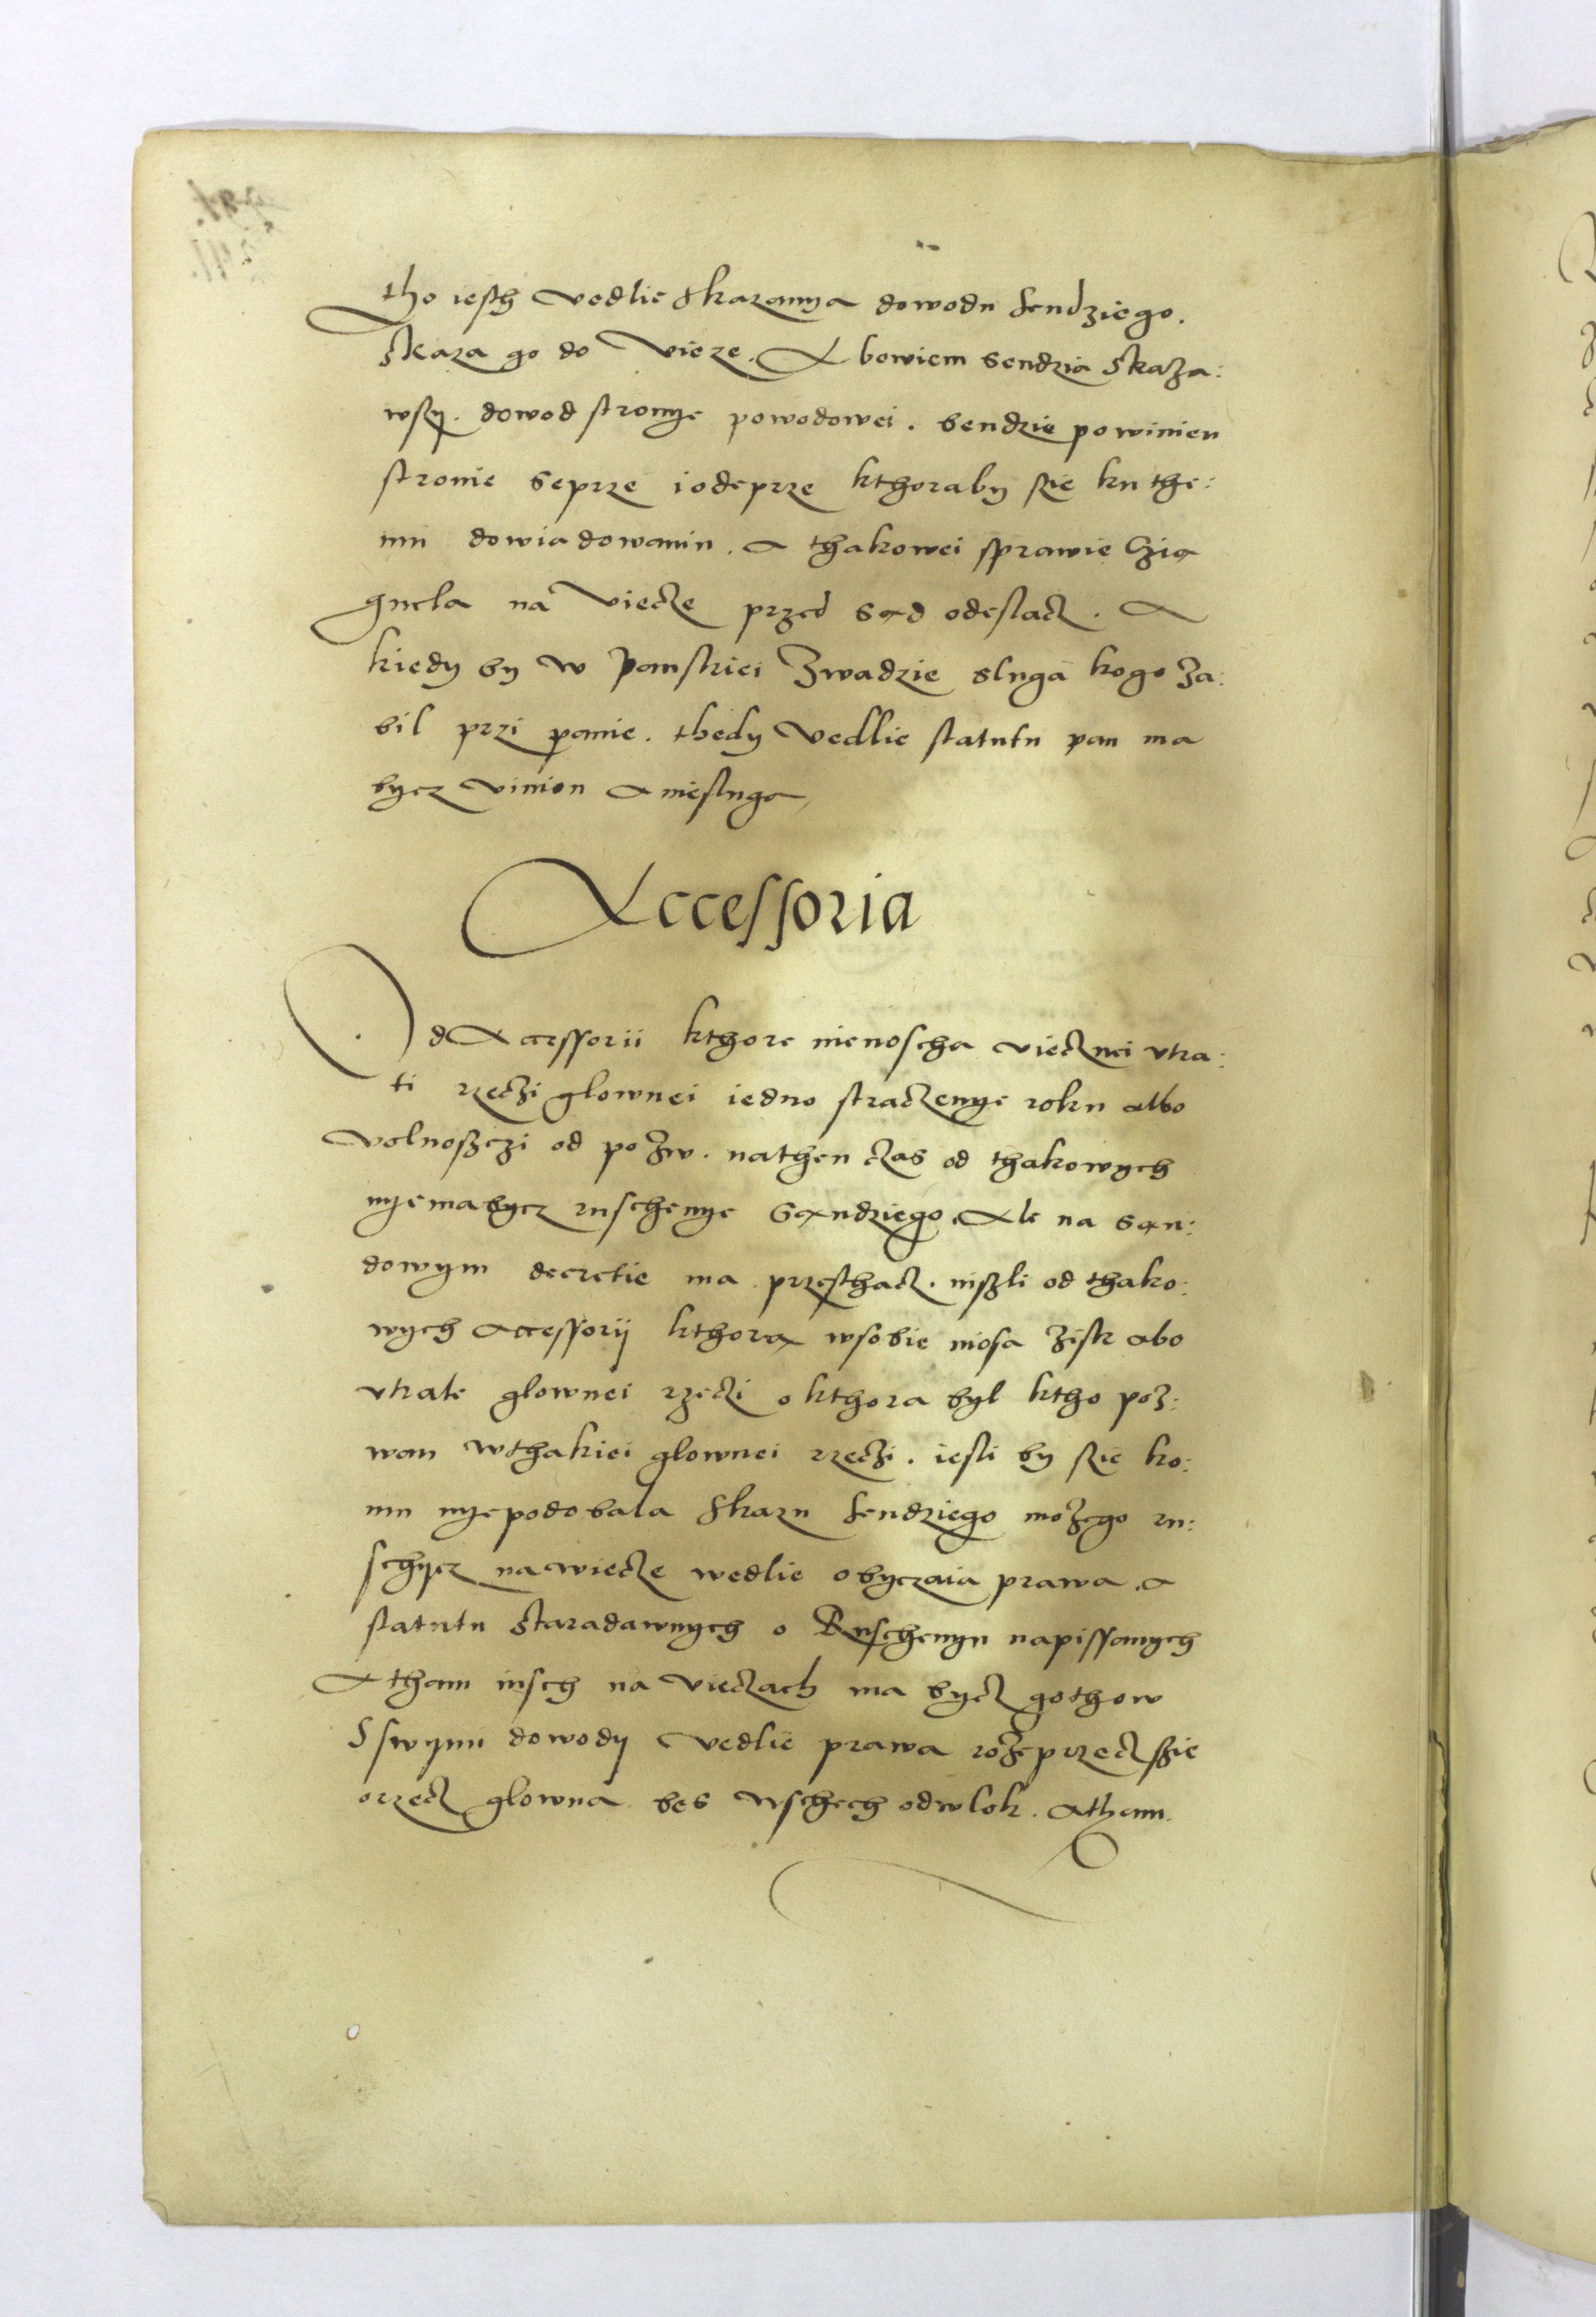 tho iesth vedlie skazanya dowodu sendziego.
skaza go do vieze. A bowiem sendzia skaza:
wszy. dowod stronye powodowei. bendzie powinien
stronie seprze i odeprze kthoraby sie ku the:
mu dowiadowaniu. a thakowei sprawie
gnela na viecze przed sąd odeslacz. A
kiedy by w panskiei zwadzie sluga kogo za:
bil przi panie. thedy vedllie statutu pan ma
bycz vinion a niesluga
Accessoria
Od Accessorii kthore nienoscha viecznei vtra:
ti rzeczi glownei iedno straczenye roku albo
volnosczi od pozw. nathen czas od thakowych
nyemabycz ruschenye sąndziego. Ale na sąn:
dowym decretie ma przesthacz. niszli od thako:
wych accessorij kthorą wsobie niosa zisk abo
vtrate glownei rzeczi o kthora byl ktho poz:
wan wthakiei glownei rzeczi. iesli by sie ko:
mu nyepodobala skazn sendziego mozego ru:
schycz nawiecze wedlie obyczaia prawa. a
statutu staradawnych o Ruschenyu napissanych
A tham iusch na vieczach ma bycz gothow
S swymi dowody vedlie prawa rozeprzecz szie
orzecz glowna bes wschech odwlok. atham.